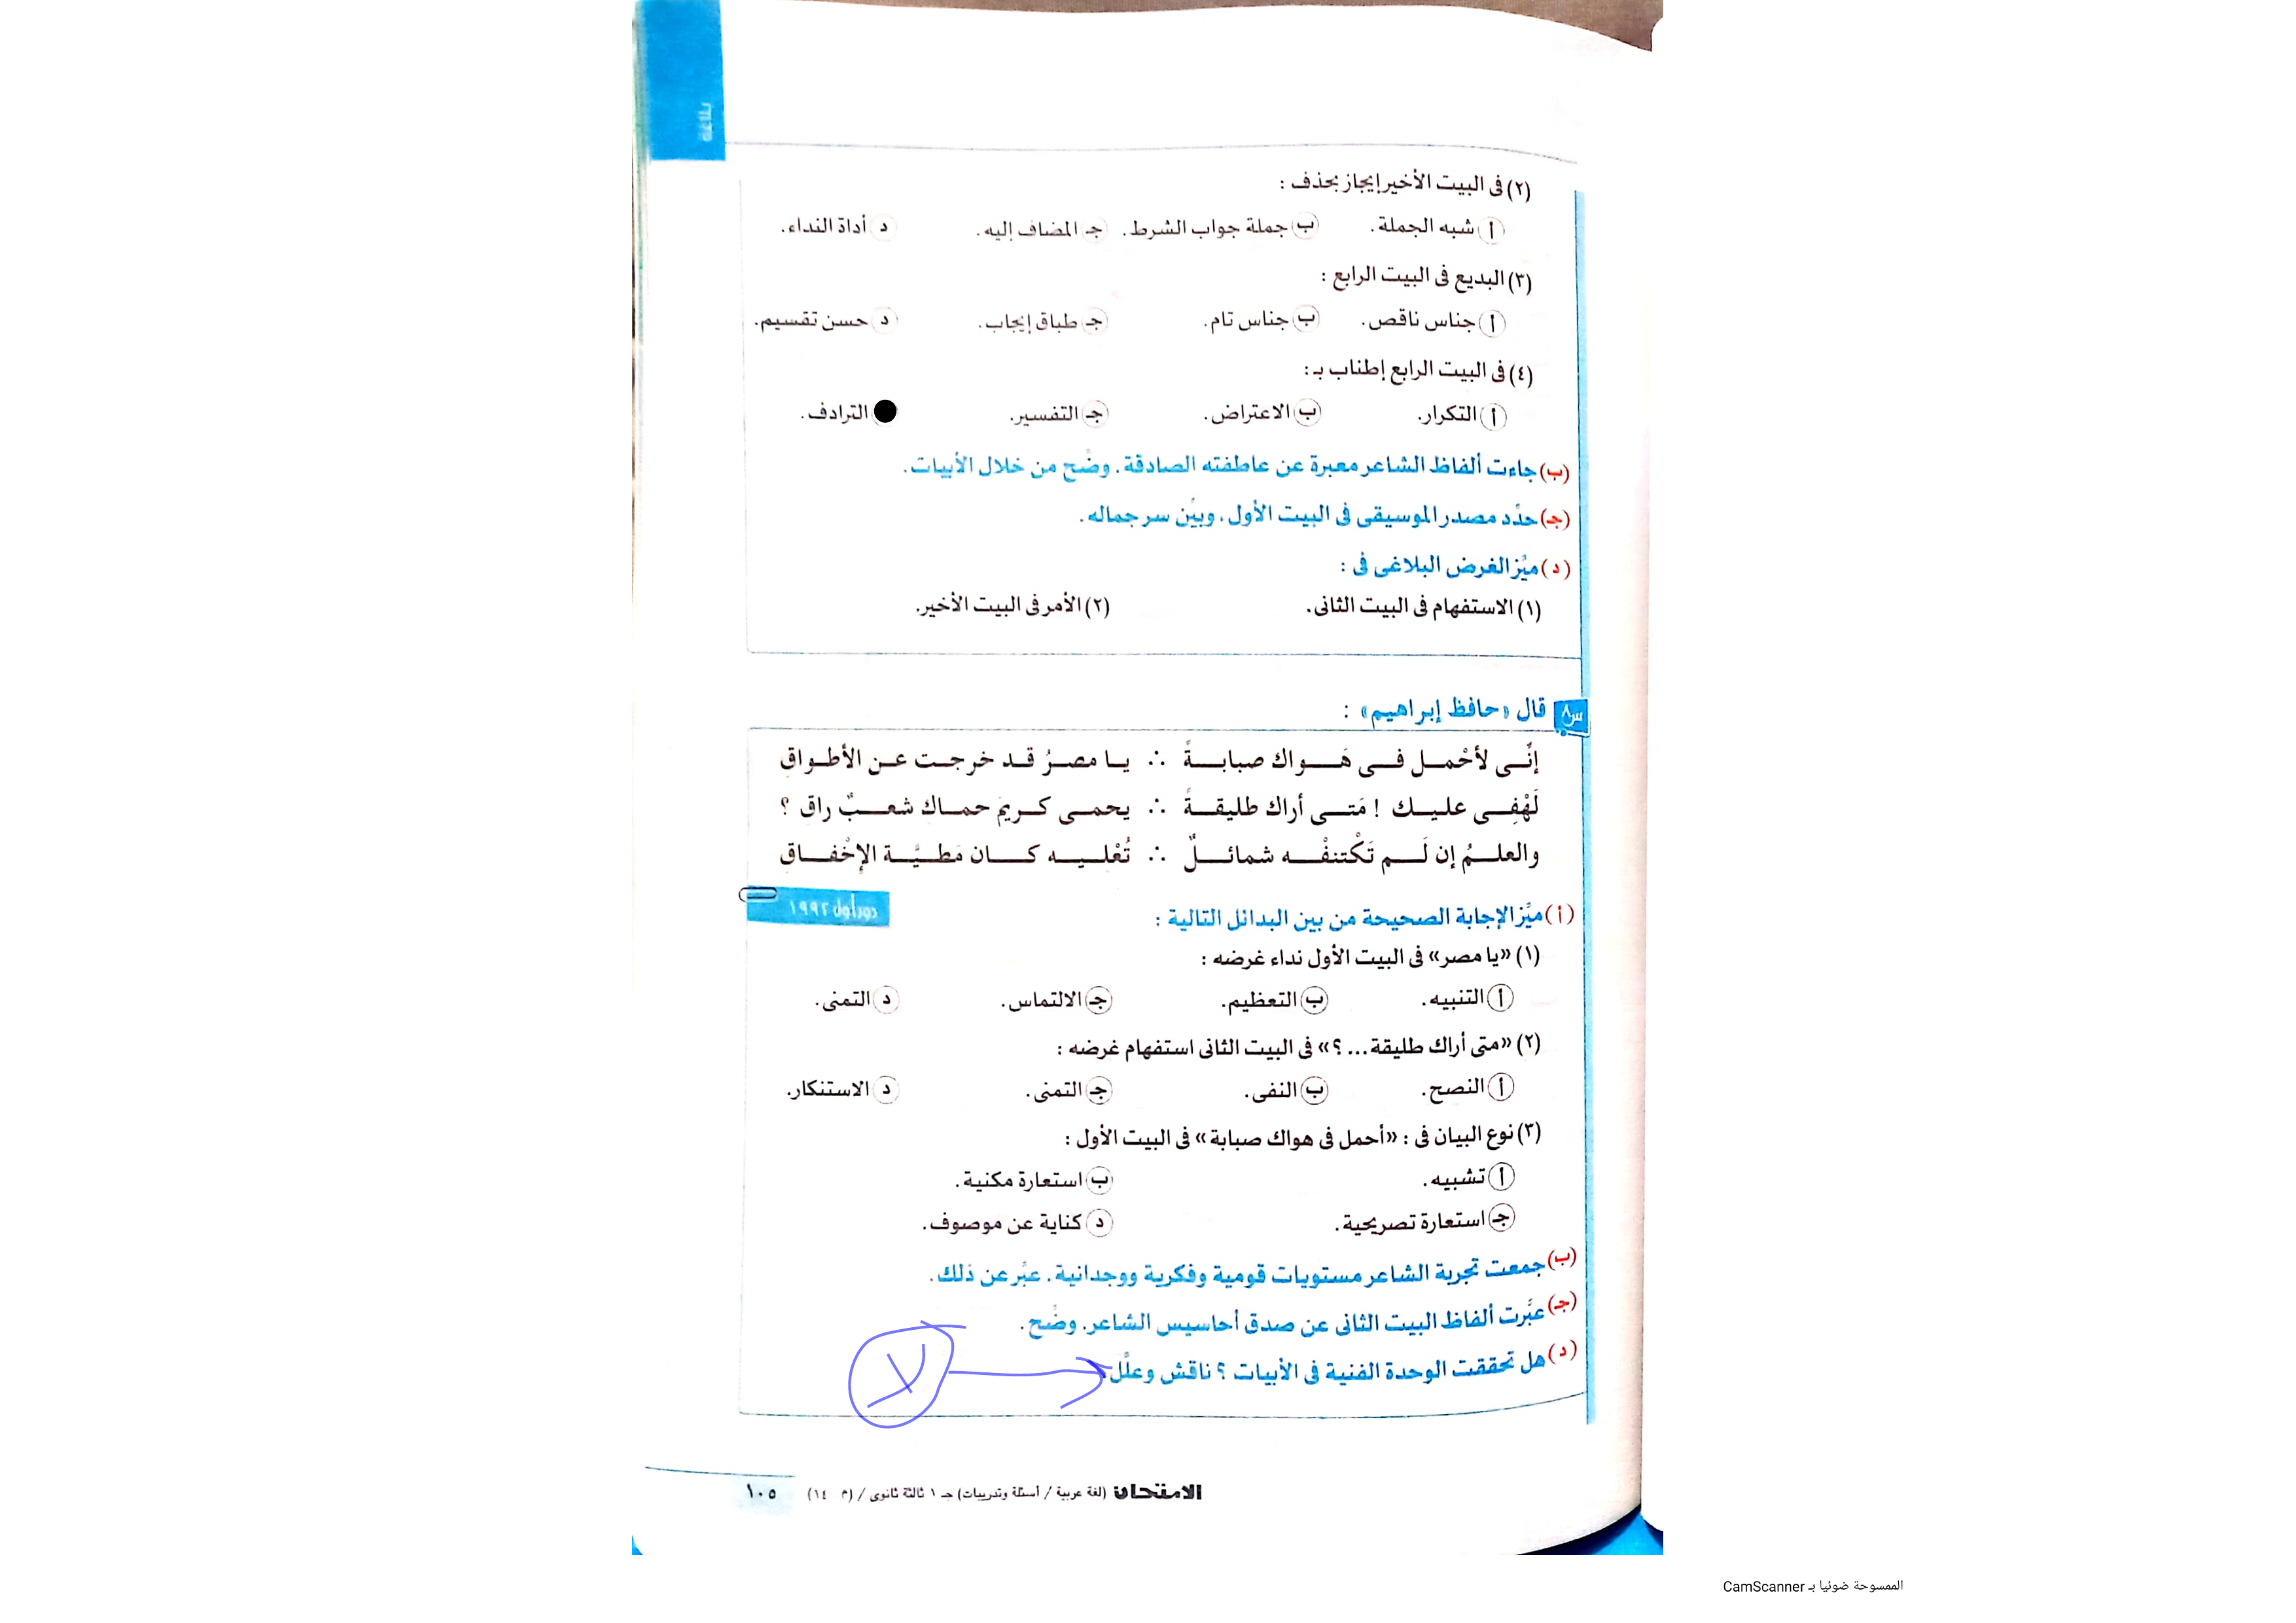 بلاغة
(٢) فى البيت الأخير إيجاز بحذف :
أ شبه الجملة. ب جملة جواب الشرط. جـ المضاف إليه. د أداة النداء.
(٣) البديع فى البيت الرابع :
أ جناس ناقص. ب جناس تام. جـ طباق إيجاب. د حسن تقسيم.
(٤) فى البيت الرابع إطناب بـ :
أ التكرار. ب الاعتراض. جـ التفسير. الترادف.
(ب) جاءت ألفاظ الشاعر معبرة عن عاطفته الصادقة. وضِّح من خلال الأبيات.
(جـ) حدِّد مصدر الموسيقى فى البيت الأول، وبيِّن سر جماله.
(د) ميِّز الغرض البلاغى فى :
(١) الاستفهام فى البيت الثانى. (٢) الأمر فى البيت الأخير.
س٨ قال «حافظ إبراهيم» :
إنِّــى لأحْمــل فــى هَــــواك صبابــــةً ∴ يــا مصــرُ قــد خرجــت عــن الأطــواقِ
لَهْفِــى عليــك ! مَتــى أراك طليقــــةً ∴ يحمــى كــريمَ حمــاك شعــــبٌ راق ؟
والعلــمُ إن لَــــم تَكْتنفْــــه شمائــــلٌ ∴ تُعْليــــه كــــان مَطــيَّــــة الإخْفــــاقِ
دور أول ١٩٩٢
(أ) ميِّز الإجابة الصحيحة من بين البدائل التالية :
(١) «يا مصر» فى البيت الأول نداء غرضه :
أ التنبيه. ب التعظيم. جـ الالتماس. د التمنى.
(٢) «متى أراك طليقة... ؟» فى البيت الثانى استفهام غرضه :
أ النصح. ب النفى. جـ التمنى. د الاستنكار.
(٣) نوع البيان فى : «أحمل فى هواك صبابة» فى البيت الأول :
أ تشبيه. ب استعارة مكنية.
جـ استعارة تصريحية. د كناية عن موصوف.
(ب) جمعت تجربة الشاعر مستويات قومية وفكرية ووجدانية. عبِّر عن ذلك.
(جـ) عبَّرت ألفاظ البيت الثانى عن صدق أحاسيس الشاعر. وضِّح.
(د) هل تحققت الوحدة الفنية فى الأبيات ؟ ناقش وعلِّل.
الامتحان (لغة عربية / أسئلة وتدريبات) جـ ١ ثالثة ثانوى / (م ١٤) ١٠٥
الممسوحة ضوئيا بـ CamScanner